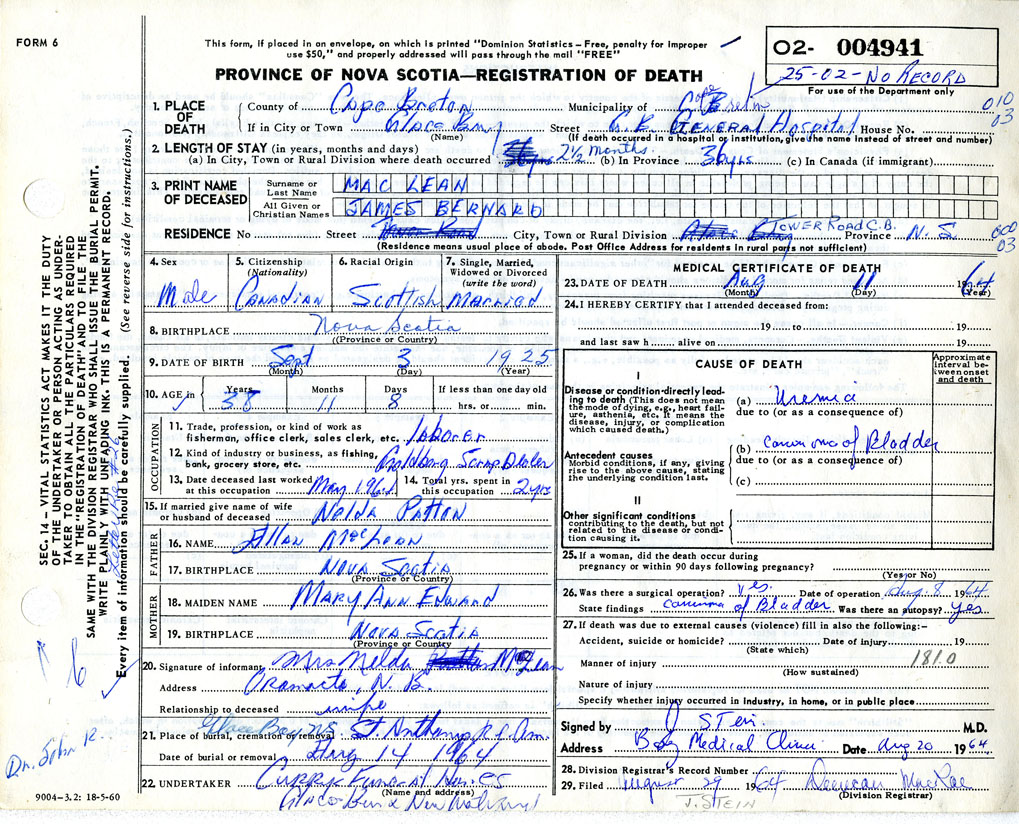 FORM 6
This form, if placed in an envelope, on which is printed "Dominion Statistics – Free, penalty for improper
use $50," and properly addressed will pass through the mail "FREE"
PROVINCE OF NOVA SCOTIA—REGISTRATION OF DEATH
02- 004941
25-02-NO RECORD
For use of the Department only
010
03
1. PLACE OF DEATH
County of Cape Breton Municipality of Cape Breton
If in City or Town Glace Bay Street G.B. General Hospital House No.
(Name) (If death occurred in a hospital or institution, give the name instead of street and number)
2. LENGTH OF STAY (in years, months and days)
(a) In City, Town or Rural Division where death occurred 2½ months. (b) In Province 36 yrs (c) In Canada (if immigrant)
3. PRINT NAME OF DECEASED
Surname or Last Name MAC LEAN
All Given or Christian Names JAMES BERNARD
RESIDENCE No Street City, Town or Rural Division TOWER ROAD C.B. Province N.S.
000
03
(Residence means usual place of abode. Post Office Address for residents in rural parts not sufficient)
4. Sex Male
5. Citizenship (Nationality) Canadian
6. Racial Origin Scottish
7. Single, Married, Widowed or Divorced (write the word) Married
8. BIRTHPLACE Nova Scotia
(Province or Country)
9. DATE OF BIRTH Sept 3 1925
(Month) (Day) (Year)
10. AGE in Years 38 Months 11 Days 8 If less than one day old hrs. or min.
OCCUPATION
11. Trade, profession, or kind of work as fisherman, office clerk, sales clerk, etc. laborer
12. Kind of industry or business, as fishing, bank, grocery store, etc. Goldberg Scrap Dealer
13. Date deceased last worked at this occupation May 1964 14. Total yrs. spent in this occupation 2 yrs
15. If married give name of wife or husband of deceased Nelda Patton
FATHER
16. NAME Allan MacLean
17. BIRTHPLACE Nova Scotia
(Province or Country)
MOTHER
18. MAIDEN NAME Mary Ann Edward
19. BIRTHPLACE Nova Scotia
(Province or Country)
20. Signature of informant Mrs Nelda McLean
Address Oromocto, N.B.
Relationship to deceased wife
Glace Bay N.S.
21. Place of burial, cremation or removal St. Anthony R.C.
Date of burial or removal Aug 14 1964
22. UNDERTAKER Curry Funeral Homes
(Name and address)
Glace Bay & New Waterford
9004–3.2: 18-5-60
MEDICAL CERTIFICATE OF DEATH
23. DATE OF DEATH Aug 11 1964
(Month) (Day) (Year)
24. I HEREBY CERTIFY that I attended deceased from:
19 to 19
and last saw h alive on 19
CAUSE OF DEATH
Approximate interval between onset and death
I
Disease or condition directly leading to death (This does not mean the mode of dying, e.g., heart failure, asthenia, etc. It means the disease, injury, or complication which caused death.)
(a) Uremia
due to (or as a consequence of)
Antecedent causes
Morbid conditions, if any, giving rise to the above cause, stating the underlying condition last.
(b) Carcinoma of Bladder
due to (or as a consequence of)
(c)
II
Other significant conditions
contributing to the death, but not related to the disease or condition causing it.
25. If a woman, did the death occur during
pregnancy or within 90 days following pregnancy?
(Yes or No)
26. Was there a surgical operation? yes. Date of operation Aug. 8 1964
State findings carcinoma of Bladder Was there an autopsy? yes
27. If death was due to external causes (violence) fill in also the following:–
Accident, suicide or homicide? Date of injury 19
(State which)
Manner of injury 181.0
(How sustained)
Nature of injury
Specify whether injury occurred in Industry, in home, or in public place
Signed by J Stein M.D.
Address Bay Medical Clinic Date Aug 20 1964
28. Division Registrar's Record Number
29. Filed August 29 1964 Duncan MacRae
(Division Registrar)
J. STEIN
SEC. 14 – VITAL STATISTICS ACT MAKES IT THE DUTY
OF THE UNDERTAKER OR PERSON ACTING AS UNDER-
TAKER TO OBTAIN ALL THE PARTICULARS REQUIRED
IN THE "REGISTRATION OF DEATH" AND TO FILE THE
SAME WITH THE DIVISION REGISTRAR WHO SHALL ISSUE THE BURIAL PERMIT.
WRITE PLAINLY WITH UNFADING INK. THIS IS A PERMANENT RECORD.
Every item of information should be carefully supplied. (See reverse side for instructions.)
6
Dr. John R